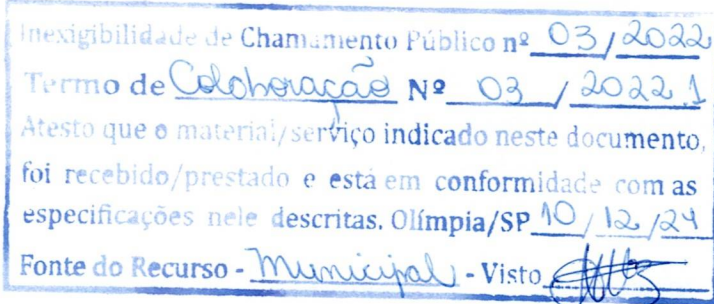 Inexigibilidade de Chamamento Público nº 03/2022
Termo de Colaboração Nº 03/2022.1
Atesto que o material/serviço indicado neste documento,
foi recebido/prestado e está em conformidade com as
especificações nele descritas. Olímpia/SP 10/12/24
Fonte do Recurso - Municipal - Visto